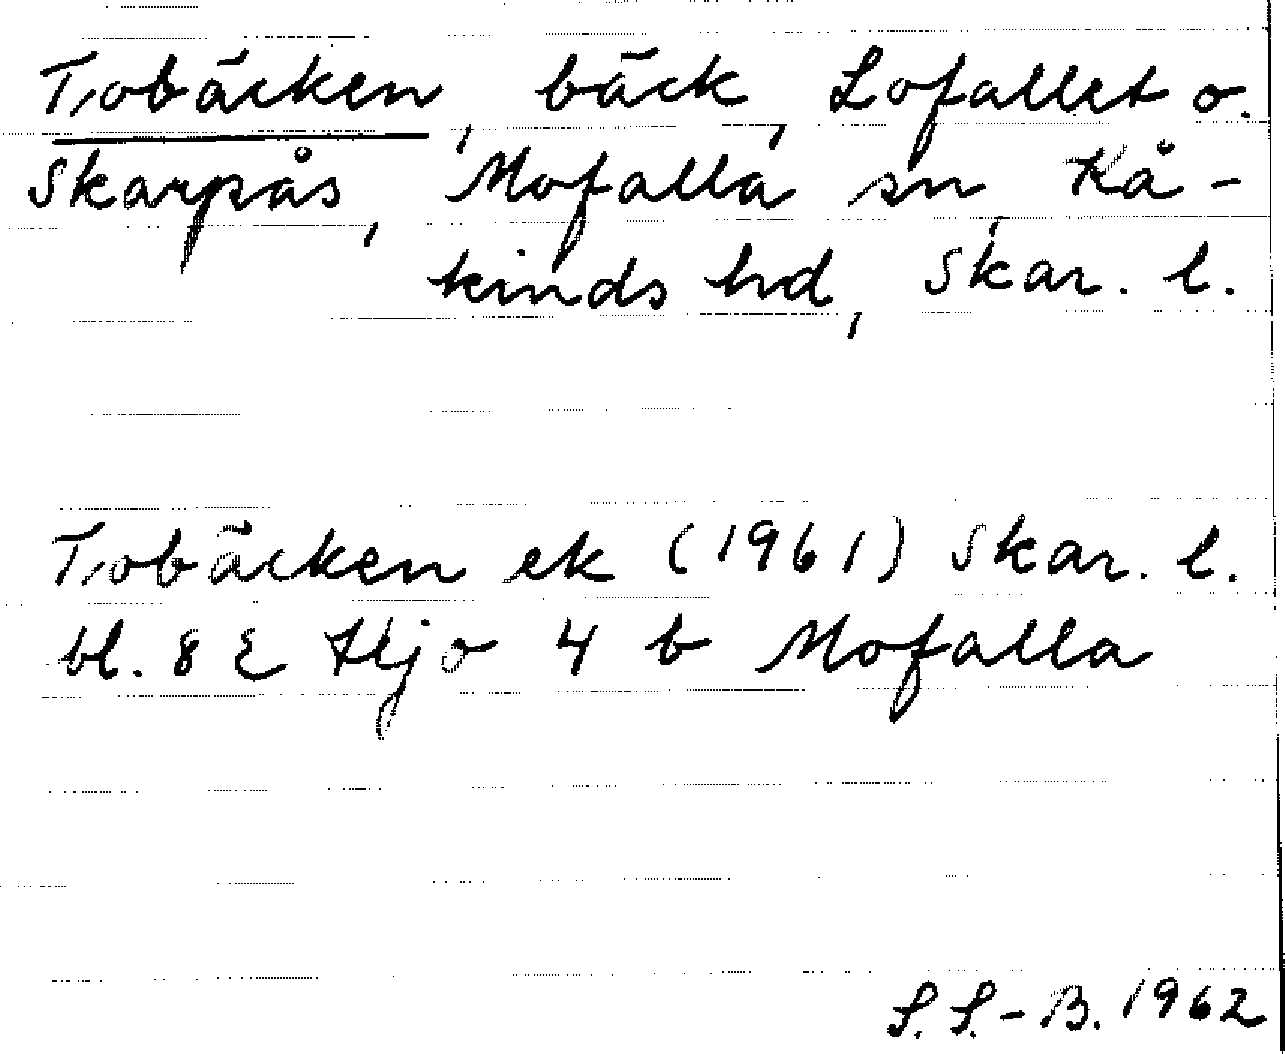 Tobäcken, bäck, Lofallet o.
Skarpås, Mofalla sn, Kå-
kinds hd, Skar. l.
Tobäcken ek (1961) Skar. l.
bl. 8 E Hjo 4 b Mofalla
S. S.-B. 1962